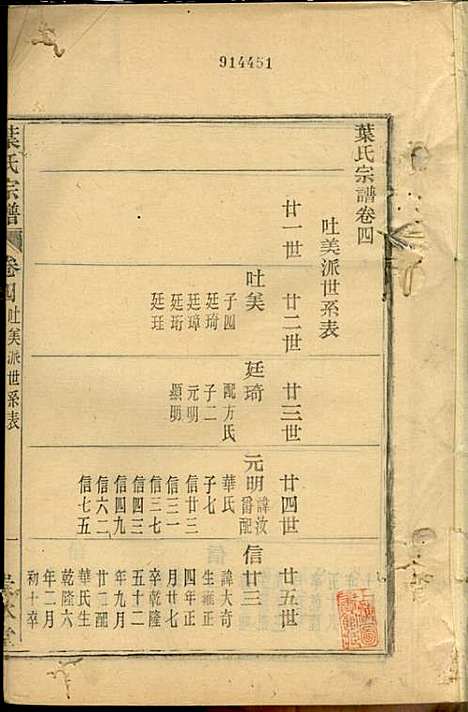 914451
葉氏宗譜卷四
吐美派世系表
廿一世
廿二世
廿三世
廿四世
廿五世
吐美
子四
廷琦
廷璋
廷珩
廷珏
廷琦
配方氏
子二
元明
顯明
元明
諱汝
配
華氏
子七
信廿三
信三一
信三七
信四三
信四九
信六二
信七五
信廿三
諱大奇
生雍正
四年正
月廿七
卒乾隆
五十二
年九月
廿二配
華氏生
乾隆六
年二月
初十卒
葉氏宗譜
卷四
吐美派世系表
一